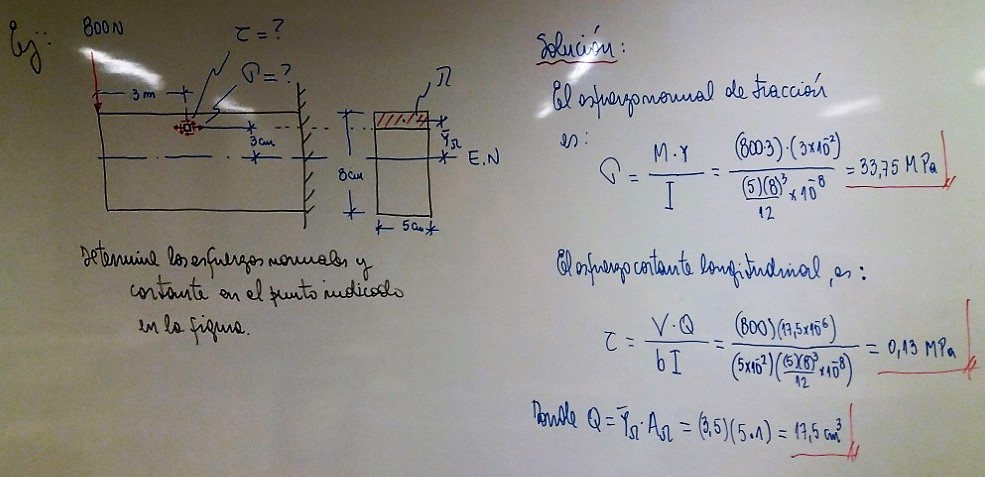 Ej:
800N
τ = ?
σ = ?
3 m
3cm
8cm
Ω
ȳ_Ω
E.N
5cm
Determine los esfuerzos normales y
cortante en el punto indicado
en la figura.
Solución:
El esfuerzo normal de tracción
es:
σ = M·Y / I = (800·3)·(3x10⁻²) / ((5)(8)³/12 x10⁻⁸) = 33,75 MPa
El esfuerzo cortante longitudinal, es:
τ = V·Q / bI = (800)(17,5x10⁻⁶) / ((5x10⁻²)((5)(8)³/12 x10⁻⁸)) = 0,13 MPa
Donde Q = ȳ_Ω·A_Ω = (3,5)(5·1) = 17,5 cm³